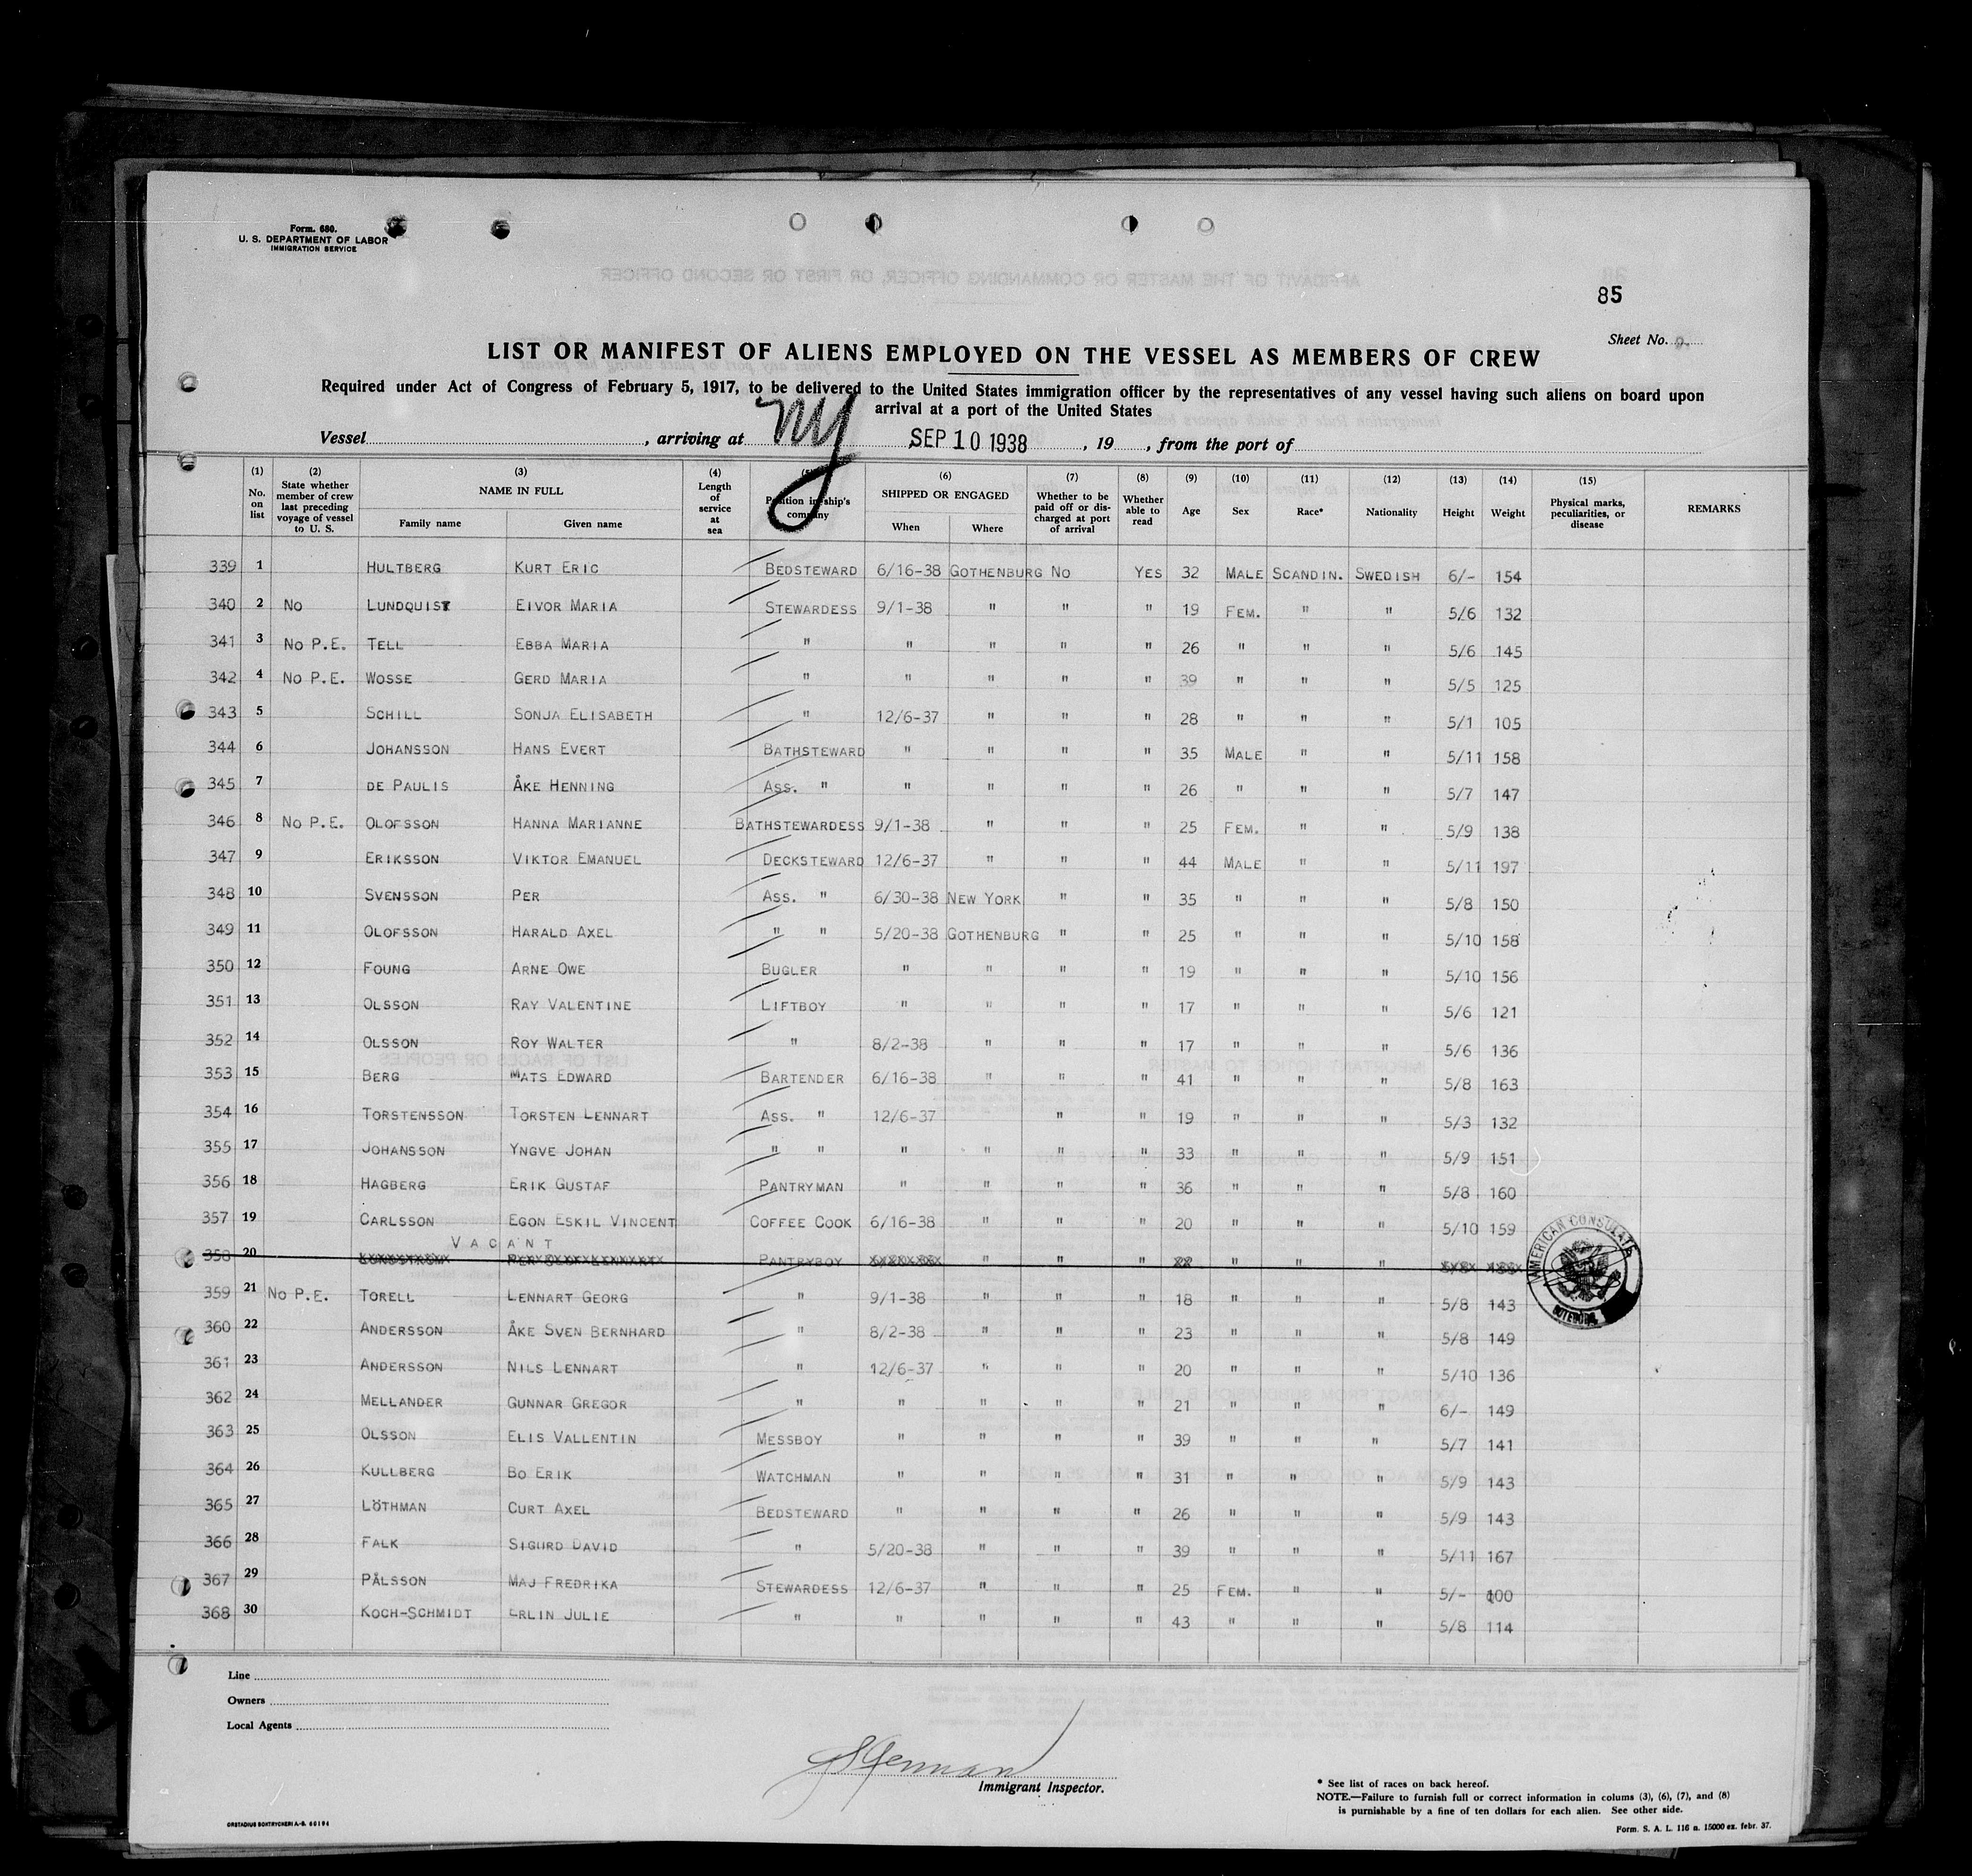 Form. 680.
U. S. DEPARTMENT OF LABOR
IMMIGRATION SERVICE
85
Sheet No.
LIST OR MANIFEST OF ALIENS EMPLOYED ON THE VESSEL AS MEMBERS OF CREW
Required under Act of Congress of February 5, 1917, to be delivered to the United States immigration officer by the representatives of any vessel having such aliens on board upon
arrival at a port of the United States
Vessel , arriving at NY SEP 10 1938 , 19 , from the port of
(1) No. on list (2) State whether member of crew last preceding voyage of vessel to U. S. (3) NAME IN FULL Family name Given name (4) Length of service at sea (5) Position in ship's company (6) SHIPPED OR ENGAGED When Where (7) Whether to be paid off or discharged at port of arrival (8) Whether able to read (9) Age (10) Sex (11) Race* (12) Nationality (13) Height (14) Weight (15) Physical marks, peculiarities, or disease REMARKS
339 1 HULTBERG KURT ERIC BEDSTEWARD 6/16-38 GOTHENBURG NO YES 32 MALE SCANDIN. SWEDISH 6/- 154
340 2 NO LUNDQUIST EIVOR MARIA STEWARDESS 9/1-38 " " " 19 FEM. " " 5/6 132
341 3 NO P.E. TELL EBBA MARIA " " " " " 26 " " " 5/6 145
342 4 NO P.E. WOSSE GERD MARIA " " " " " 39 " " " 5/5 125
343 5 SCHILL SONJA ELISABETH " 12/6-37 " " " 28 " " " 5/1 105
344 6 JOHANSSON HANS EVERT BATHSTEWARD " " " " 35 MALE " " 5/11 158
345 7 DE PAULIS ÅKE HENNING ASS. " " " " " 26 " " " 5/7 147
346 8 NO P.E. OLOFSSON HANNA MARIANNE BATHSTEWARDESS 9/1-38 " " " 25 FEM. " " 5/9 138
347 9 ERIKSSON VIKTOR EMANUEL DECKSTEWARD 12/6-37 " " " 44 MALE " " 5/11 197
348 10 SVENSSON PER ASS. " 6/30-38 NEW YORK " " 35 " " " 5/8 150
349 11 OLOFSSON HARALD AXEL " " 5/20-38 GOTHENBURG " " 25 " " " 5/10 158
350 12 FOUNG ARNE OWE BUGLER " " " " 19 " " " 5/10 156
351 13 OLSSON RAY VALENTINE LIFTBOY " " " " 17 " " " 5/6 121
352 14 OLSSON ROY WALTER " 8/2-38 " " " 17 " " " 5/6 136
353 15 BERG MATS EDWARD BARTENDER 6/16-38 " " " 41 " " " 5/8 163
354 16 TORSTENSSON TORSTEN LENNART ASS. " 12/6-37 " " 19 " " " 5/3 132
355 17 JOHANSSON YNGVE JOHAN " " " " " " 33 " " " 5/9 151
356 18 HAGBERG ERIK GUSTAF PANTRYMAN " " " " 36 " " " 5/8 160
357 19 CARLSSON EGON ESKIL VINCENT COFFEE COOK 6/16-38 " " " 20 " " " 5/10 159
VACANT
358 20 PANTRYBOY " " " 22 " " "
359 21 NO P.E. TORELL LENNART GEORG " 9/1-38 " " " 18 " " " 5/8 143
360 22 ANDERSSON ÅKE SVEN BERNHARD " 8/2-38 " " " 23 " " " 5/8 149
361 23 ANDERSSON NILS LENNART " 12/6-37 " " " 20 " " " 5/10 136
362 24 MELLANDER GUNNAR GREGOR " " " " " 21 " " " 6/- 149
363 25 OLSSON ELIS VALLENTIN MESSBOY " " " " 39 " " " 5/7 141
364 26 KULLBERG BO ERIK WATCHMAN " " " " 31 " " " 5/9 143
365 27 LÖTHMAN CURT AXEL BEDSTEWARD " " " " 26 " " " 5/9 143
366 28 FALK SIGURD DAVID " 5/20-38 " " " 39 " " " 5/11 167
367 29 PÅLSSON MAJ FREDRIKA STEWARDESS 12/6-37 " " " 25 FEM. " " 5/- 100
368 30 KOCH-SCHMIDT ERLIN JULIE " " " " " 43 " " " 5/8 114
AMERICAN CONSULATE
GOTEBORG
Line
Owners
Local Agents
Immigrant Inspector.
* See list of races on back hereof.
NOTE.—Failure to furnish full or correct information in colums (3), (6), (7), and (8)
is punishable by a fine of ten dollars for each alien. See other side.
Form. S. A. L. 116 a. 15000 ex. febr. 37.